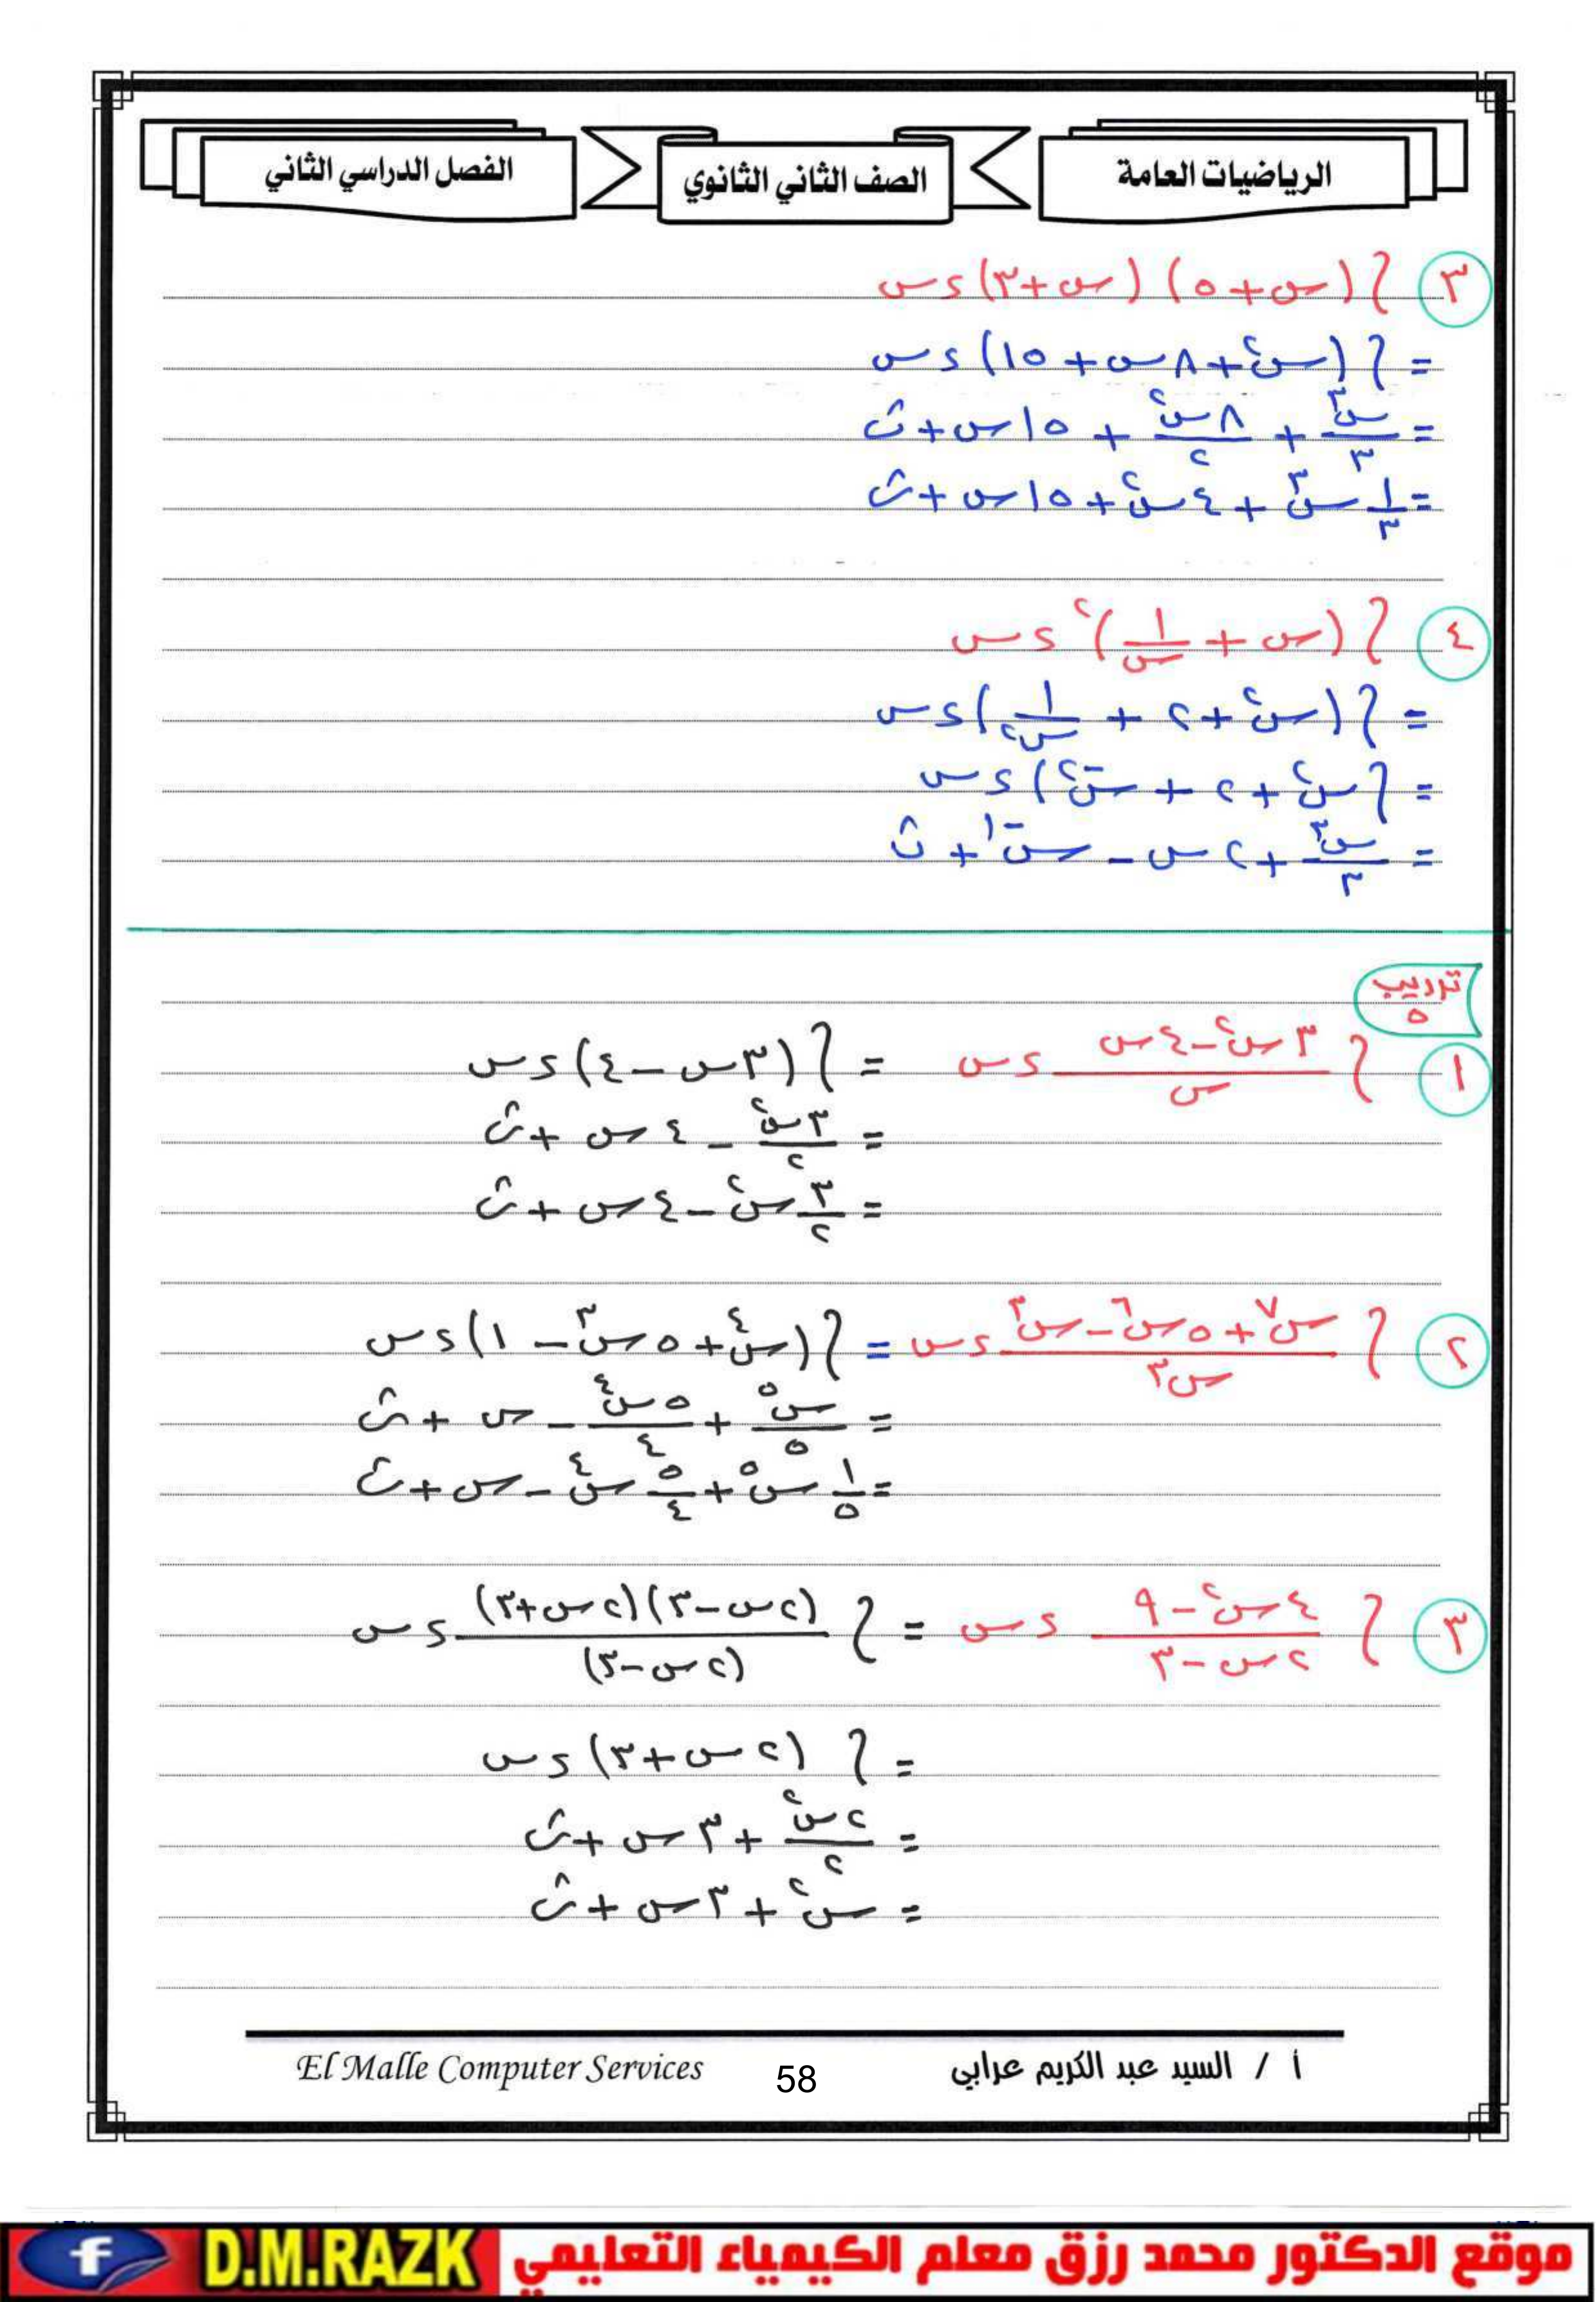 الرياضيات العامة
الصف الثاني الثانوي
الفصل الدراسي الثاني
٣ ∫ (س+٥) (س+٣) ءس
= ∫ (س²+٨س+١٥) ءس
= س³/٣ + ٨س²/٢ + ١٥س + ث
= ١/٣ س³ + ٤س² + ١٥س + ث
٤ ∫ (س + ١/س)² ءس
= ∫ (س² + ٢ + ١/س²) ءس
= ∫ س² + ٢ + س⁻²) ءس
= س³/٣ + ٢س - س⁻¹ + ث
تدريب ٥
١ ∫ ٣س²-٤س/س ءس = ∫ (٣س-٤) ءس
= ٣س²/٢ - ٤س + ث
= ٣/٢ س² - ٤س + ث
٢ ∫ س⁷+٥س⁶-س³/س³ ءس = ∫ (س⁴+٥س³-١) ءس
= س⁵/٥ + ٥س⁴/٤ - س + ث
= ١/٥ س⁵ + ٥/٤ س⁴ - س + ث
٣ ∫ ٤س²-٩/٢س-٣ ءس = ∫ (٢س-٣)(٢س+٣)/(٢س-٣) ءس
= ∫ (٢س+٣) ءس
= ٢س²/٢ + ٣س + ث
= س² + ٣س + ث
أ / السيد عبد الكريم عرابي
58
El Malle Computer Services
موقع الدكتور محمد رزق معلم الكيمياء التعليمي
D.M.RAZK
f